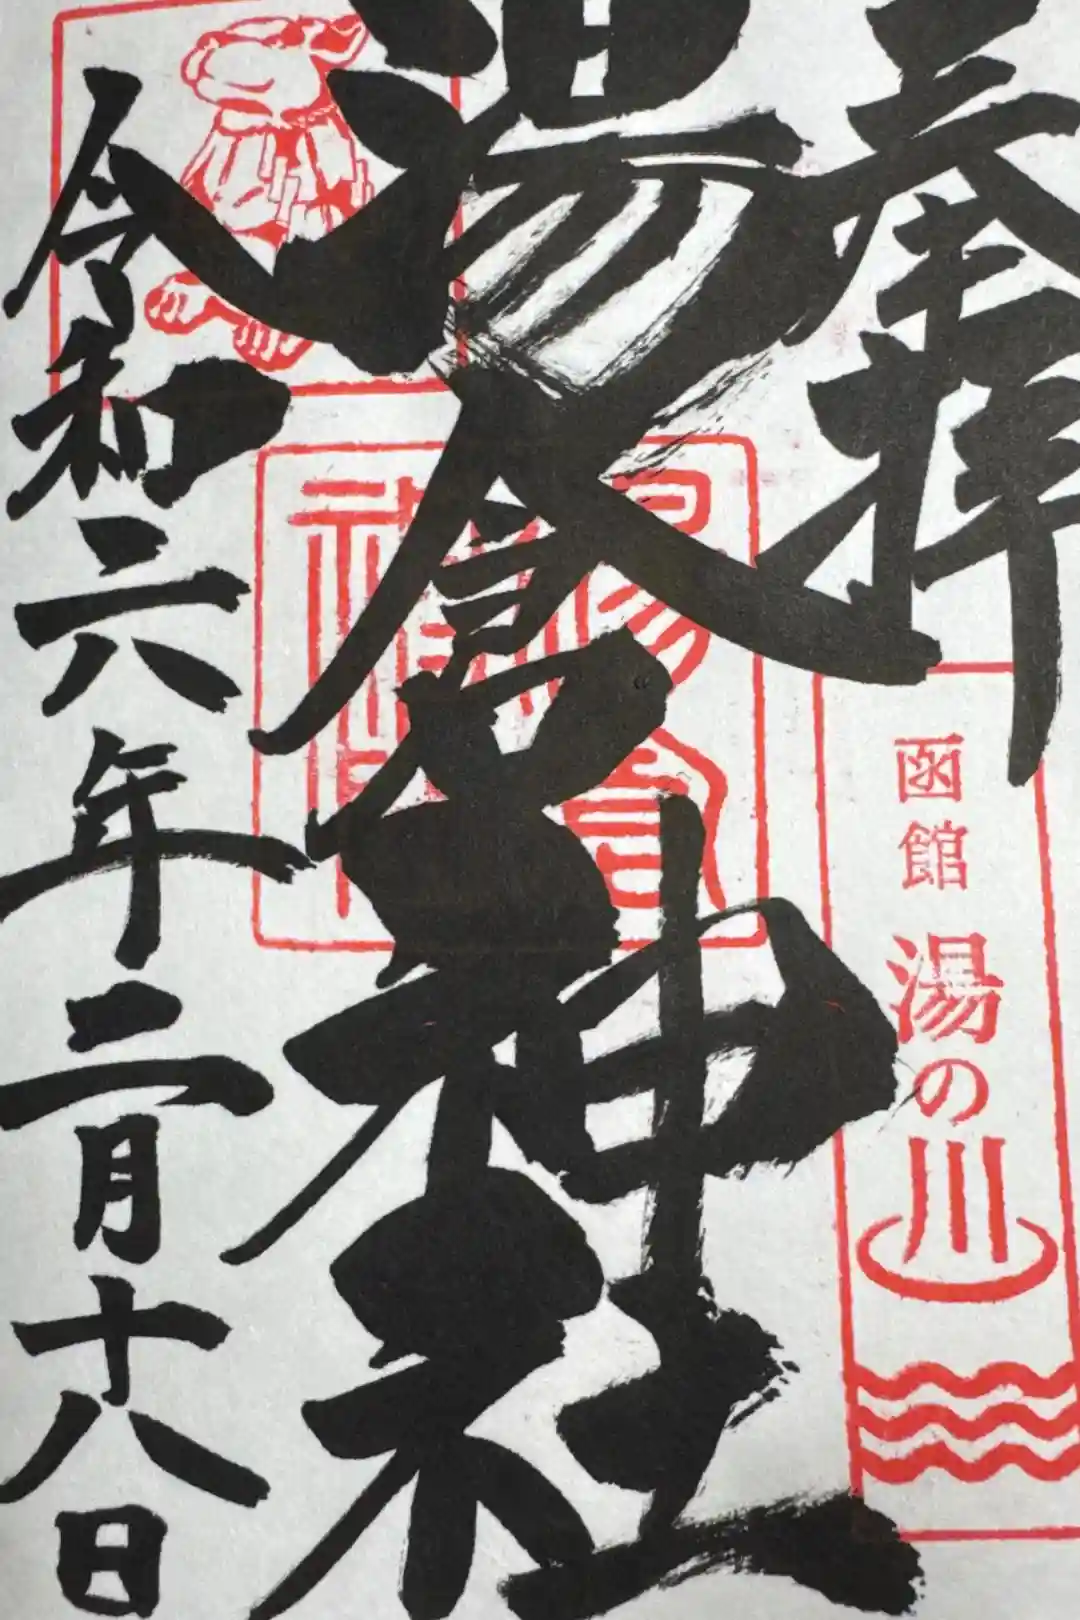 奉拝
函館 湯の川
湯倉神社
令和六年二月十八日